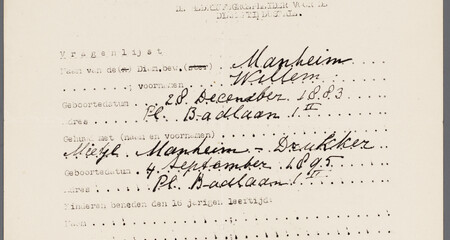 Vragenlijst
Naam van de(n) Dien.bew.(ster) Manheim
" voornamen Willem
Geboortedatum 28 December 1883
Adres Pl. Badlaan 1 II
Gehuwd met (naam en voornamen)
Mietje Manheim - Drukker
Geboortedatum 4 September 1895
Adres Pl. Badlaan 1 II
Kinderen beneden den 16 jarigen leeftijd:
Naam